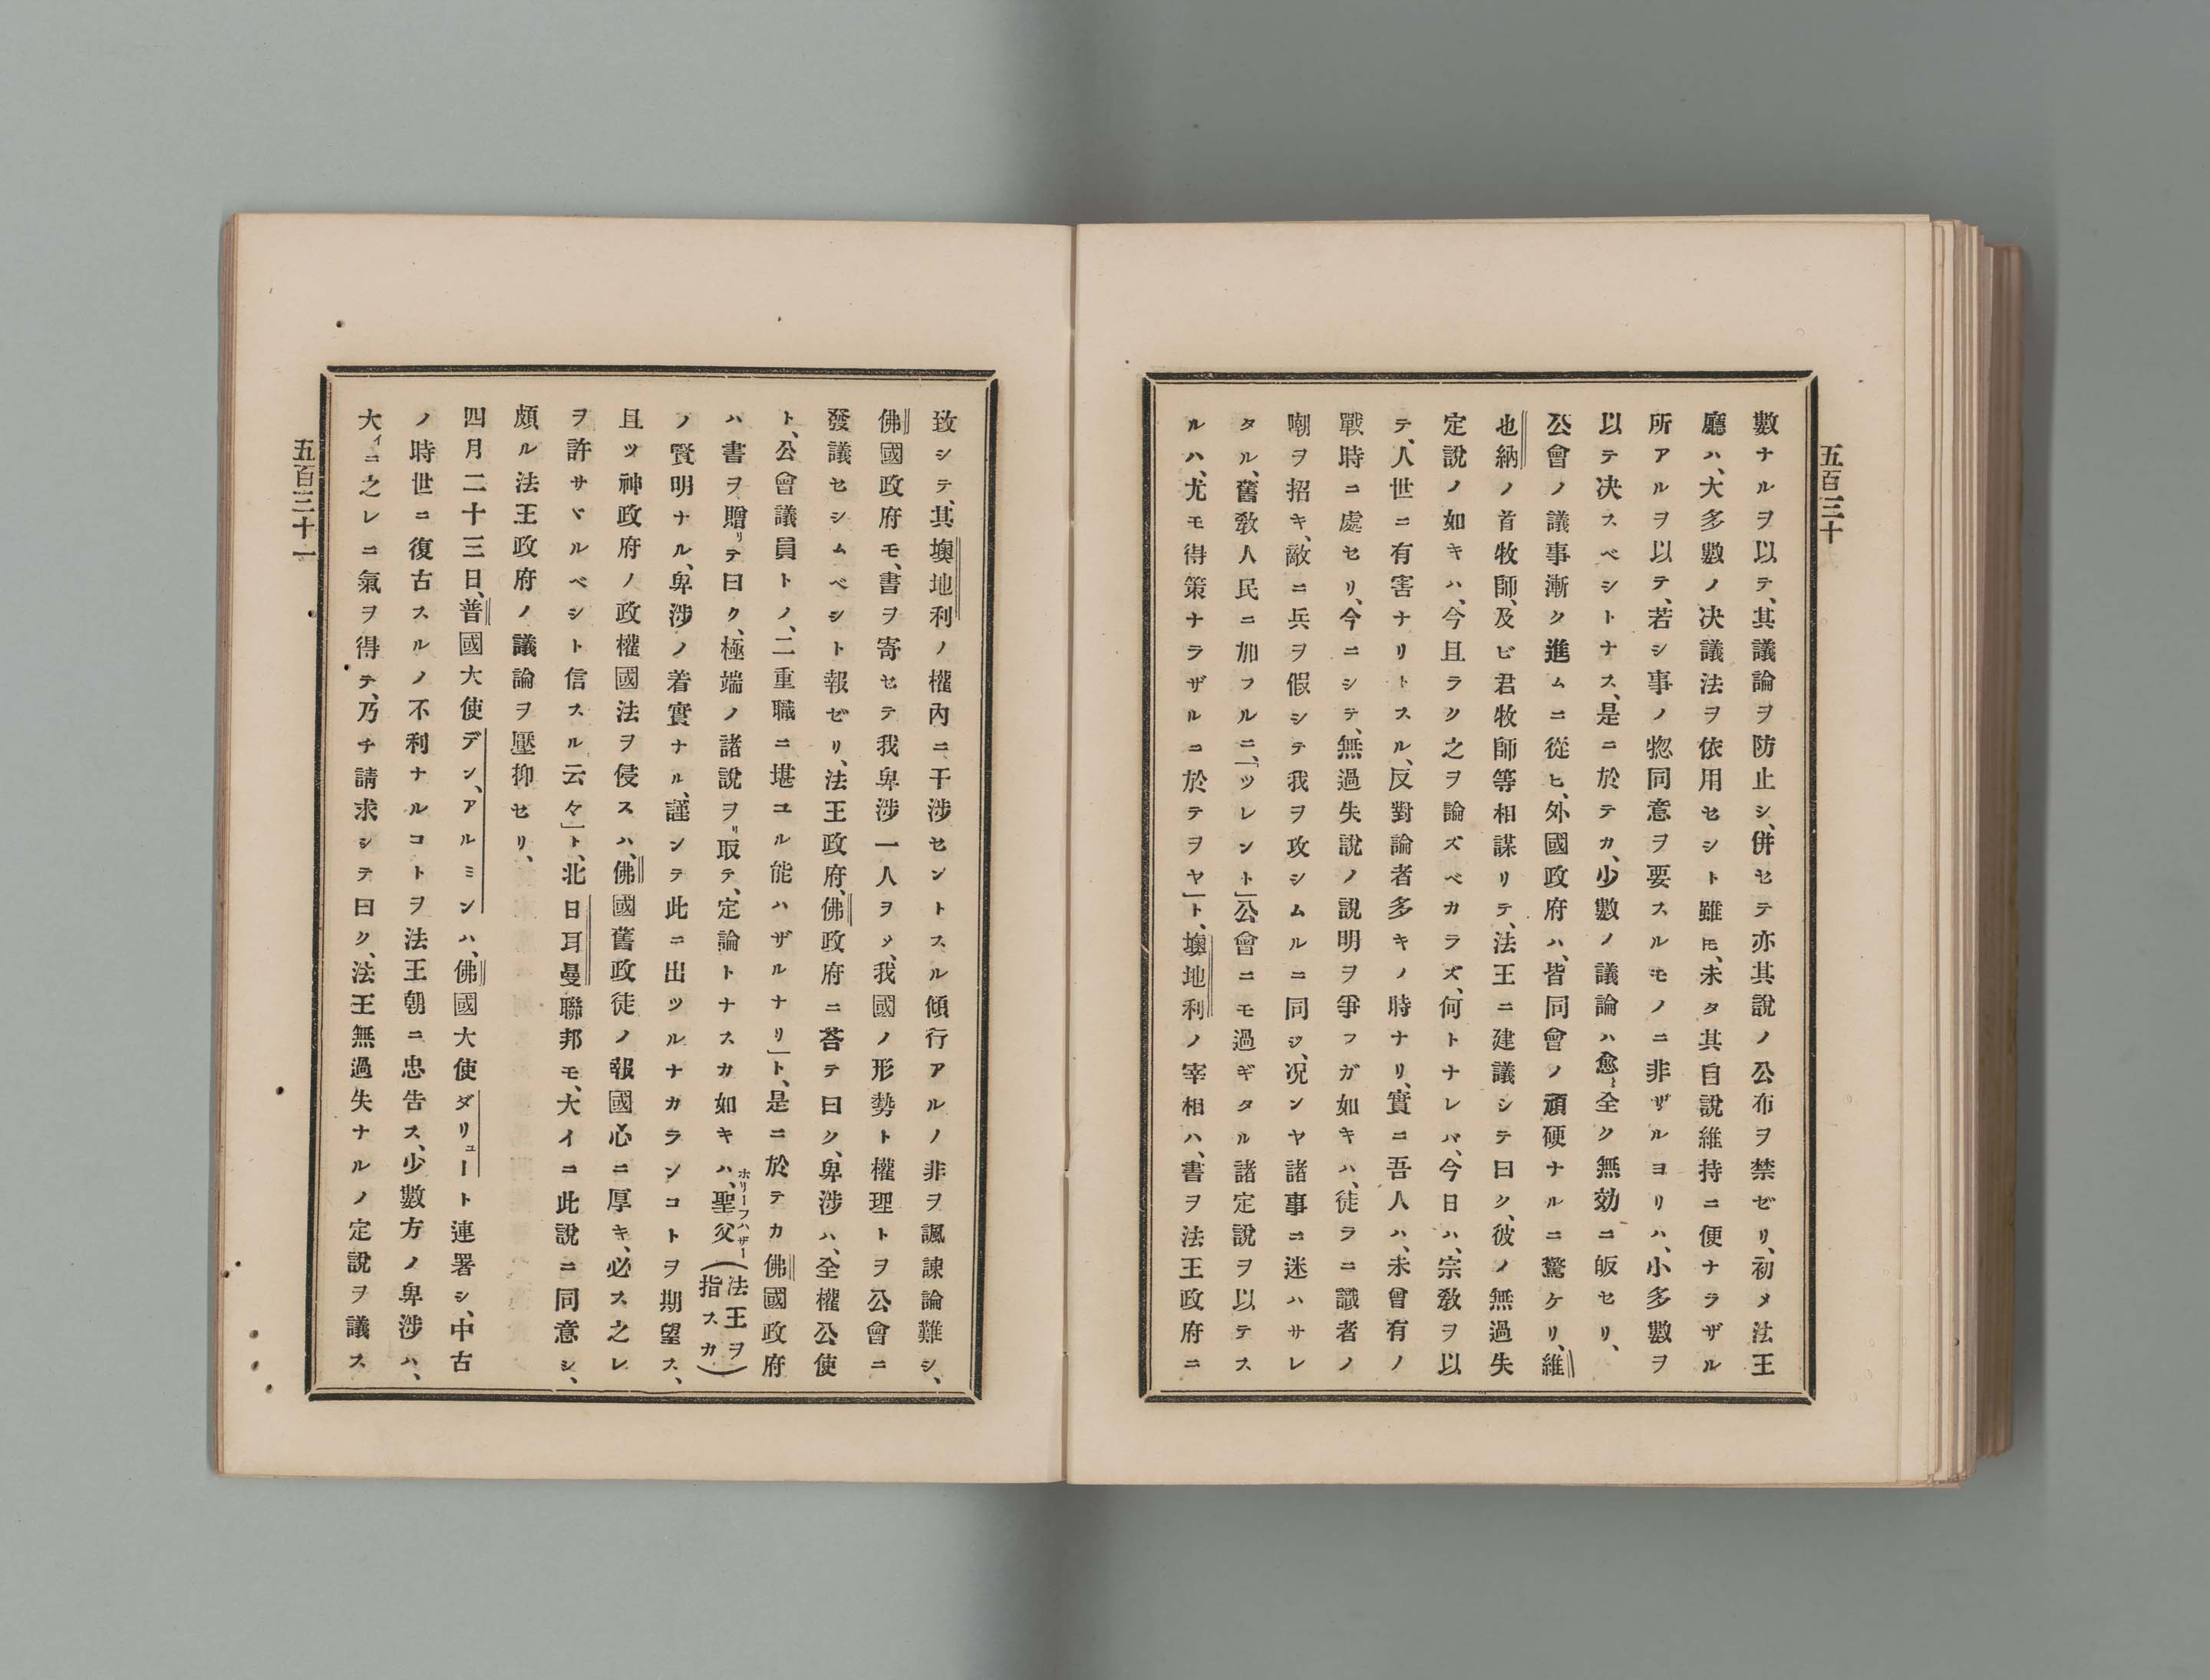 五百三十
數ナルヲ以テ、其議論ヲ防止シ、併セテ亦其說ノ公布ヲ禁ゼリ、初メ法王
廳ハ、大多數ノ決議法ヲ依用セシト雖𪜈、未タ其自說維持ニ便ナラザル
所アルヲ以テ、若シ事ノ惣同意ヲ要スルモノニ非ザルヨリハ、小多數ヲ
以テ決スベシトナス、是ニ於テカ、少數ノ議論ハ愈〻全ク無効ニ皈セリ、
公會ノ議事漸ク進ムニ從ヒ、外國政府ハ、皆同會ノ頑硬ナルニ驚ケリ、維
也納ノ首牧師、及ビ君牧師等相謀リテ、法王ニ建議シテ曰ク、彼ノ無過失
定說ノ如キハ、今且ラク之ヲ論ズベカラズ、何トナレバ、今日ハ、宗敎ヲ以
テ、人世ニ有害ナリトスル、反對論者多キノ時ナリ、實ニ吾人ハ、未曾有ノ
戰時ニ處セリ、今ニシテ、無過失說ノ說明ヲ爭フガ如キハ、徒ラニ識者ノ
嘲ヲ招キ、敵ニ兵ヲ假シテ我ヲ攻シムルニ同ジ、況ンヤ諸事ニ迷ハサレ
タル、舊敎人民ニ加フルニ、「ツレント」公會ニモ過ギタル諸定說ヲ以テス
ルハ、尤モ得策ナラザルニ於テヲヤ」ト、墺地利ノ宰相ハ、書ヲ法王政府ニ
致シテ、其墺地利ノ權內ニ干涉セントスル傾行アルノ非ヲ諷諫論難シ、
佛國政府モ、書ヲ寄セテ我卑涉一人ヲメ、我國ノ形勢ト權理トヲ公會ニ
發議セシムベシト報ゼリ、法王政府、佛政府ニ荅テ曰ク、卑涉ハ、全權公使
ト、公會議員トノ、二重職ニ堪ユル能ハザルナリ」ト、是ニ於テカ佛國政府
ハ書ヲ贈リテ曰ク、極端ノ諸說ヲリ取テ、定論トナスカ如キハ、聖父ホリーフハザー（法王ヲ指スカ）
ノ賢明ナル、卑涉ノ着實ナル、謹ンテ此ニ出ツルナカランコトヲ期望ス、
且ツ神政府ノ政權國法ヲ侵スハ、佛國舊政徒ノ報國心ニ厚キ、必ス之レ
ヲ許サヾルベシト信スル云々」ト、北日耳曼聯邦モ、大イニ此說ニ同意シ、
頗ル法王政府ノ議論ヲ壓抑セリ、
四月二十三日、普國大使デン、アルミンハ、佛國大使ダリューート連署シ、中古
ノ時世ニ復古スルノ不利ナルコトヲ法王朝ニ忠告ス、少數方ノ卑涉ハ、
大イニ之レニ氣ヲ得テ、乃チ請求シテ曰ク、法王無過失ナルノ定說ヲ議ス
五百三十一